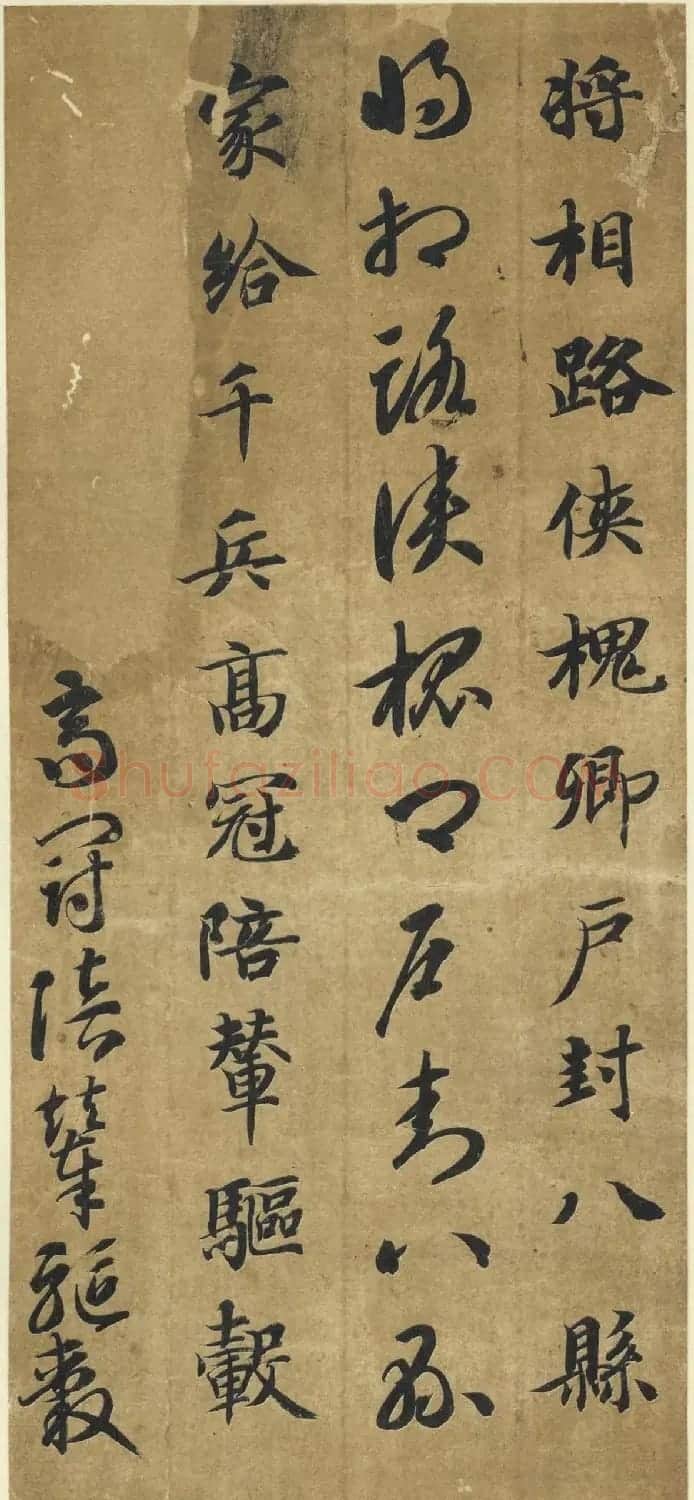 将相路侠槐卿户封八縣
将相路侠槐卿户封八縣
家給千兵髙冠陪輦驅轂
髙冠陪輦驅轂
Shufaziliao.COM